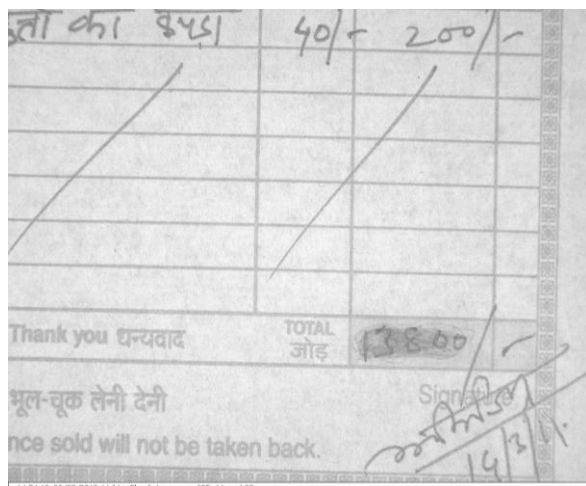 का कपड़ा 40/- 200/-
Thank you धन्यवाद TOTAL 13800/-
जोड़
भूल-चूक लेनी देनी Signature
nce sold will not be taken back.